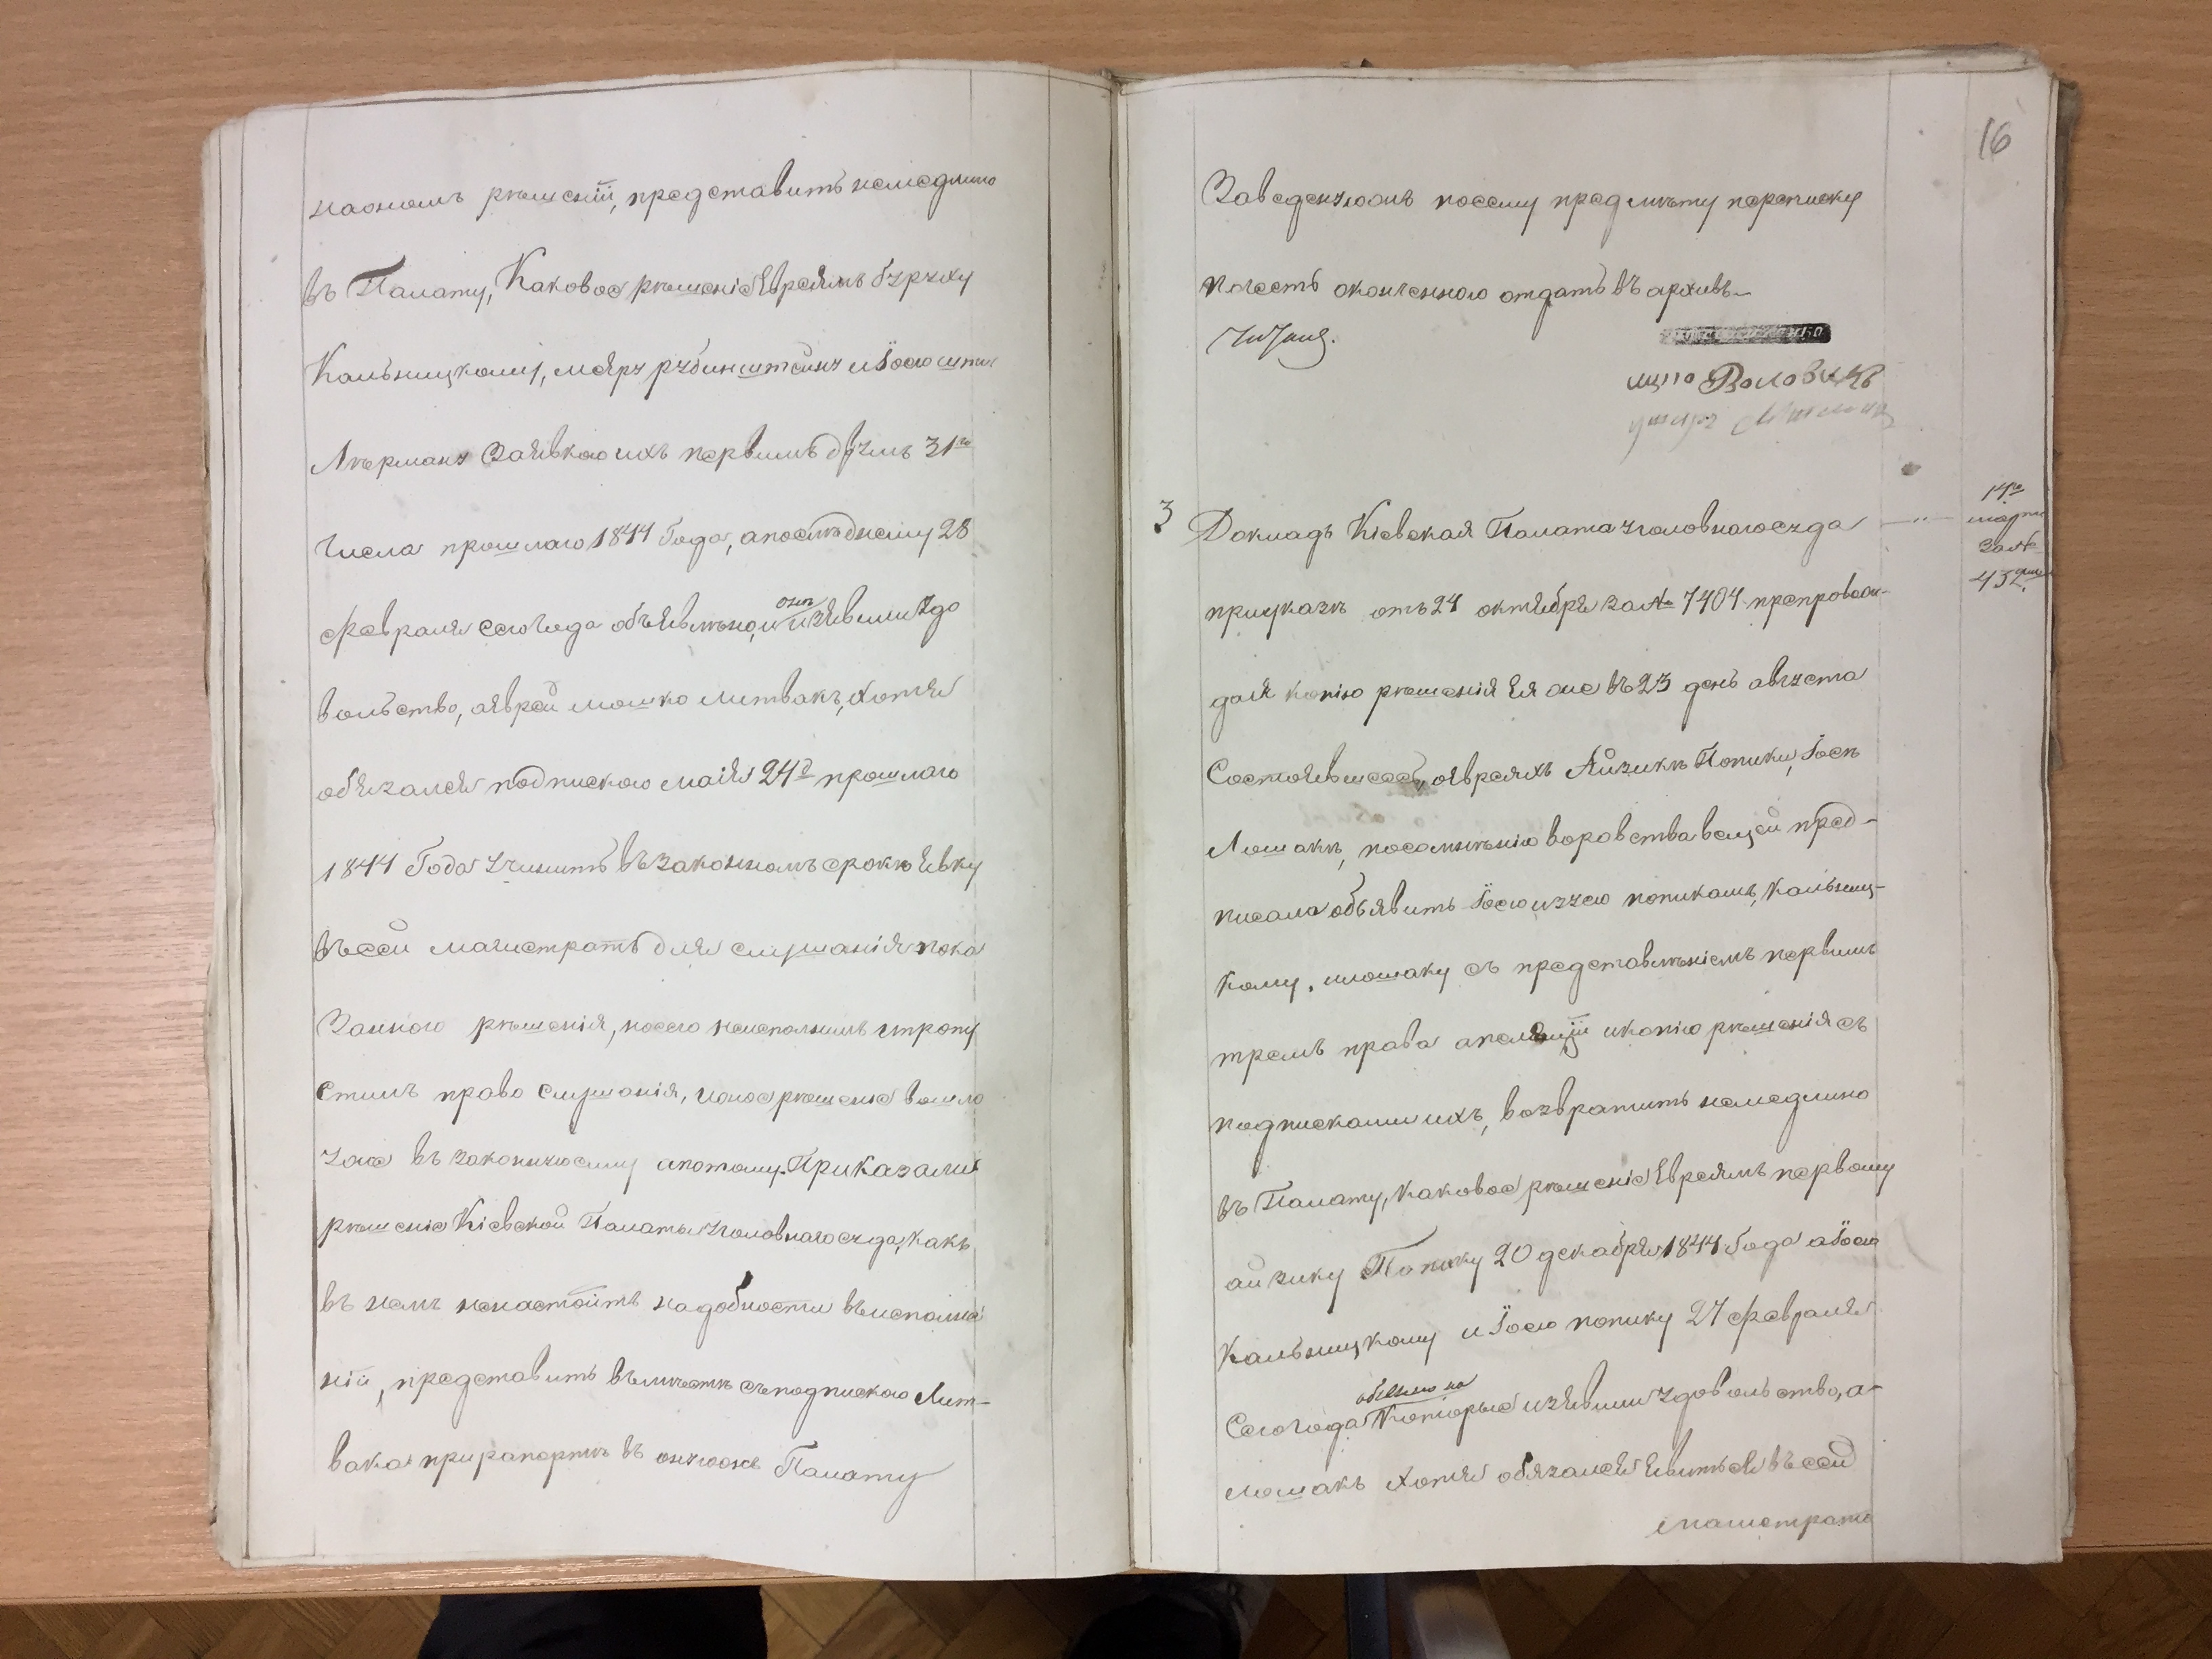 наономъ рѣшеніи, представить немедлино
въ Палату, Каковое рѣшеніе Евреямъ
Кальницкому, меяру рубинштейну и Іосю
Лѣерману Заявкою ихъ первимъ двумъ 31го
числа прошлаго 1844 Года, апослѣднему 28
февраля сего года объявлѣно, и они изъявили удо
вольство, аеврей мошко литвакъ, хотя
обязался подпискою маія 24д прошлаго
1844 Года учинить въ законномъ срокѣ явку
въсей магистратъ для слушанія пока
Занного рѣшенія, носего неисполнилъ ипропу
стилъ право слушанія, ионое рѣшеніе вошло
уже въ законную силу апотому. Приказали
рѣшеніе Кіевской Палаты уголовнаго суда, какъ
въ немъ ненастоитъ надобности въисполне
ніи, представить въмѣстѣ съподпискою Лит-
вака при рапортѣ въ онуюже Палату
16
Заведенную посему предмѣту переписку
почесть оконченною отдать въ архивъ
Воловикъ
3 Докладъ Кіевская Палата уголовнаго суда
14го
марта
За №
432
приуказѣ отъ 24 октября за № 7404 препровож-
дая копію рѣшенія ея же въ 23 день августа
Состоявшееся, оевреяхъ Айзикѣ Попики, Іосѣ
Лошакѣ, посомнѣнію воровства вещей пред-
писала объявить Іосю изую попикамъ, Кальниц-
кому, илошаку съ представлѣніемъ первимъ
тремъ права апеляціи икопію рѣшенія съ
подписками ихъ, возвратить немедлино
въ Палату, каковое рѣшеніе Евреямъ первому
айзику Попику 20 декабря 1844 Года а Іосю
Кальницкому и Іосю попику 27 февраля
Сего года объявлено на Которые изъявили удовольство, а-
лошакъ хотя обязался явиться въ сей
магистратъ